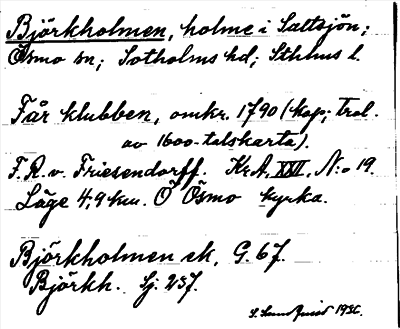 Björkholmen, holme i Saltsjön;
Ösmo sn; Sotholms hd; Sthlms l.
Får klubben, omkr. 1790 (kop; trol.
av 1600-talskarta).
F.R. v. Friesendorff. KrA, XXVI, N:o 19.
Läge 4,9 km. Ö Ösmo kyrka.
Björkholmen ek, G. 67.
Björkh. Sj. 237.
S. Lundquist 1936.